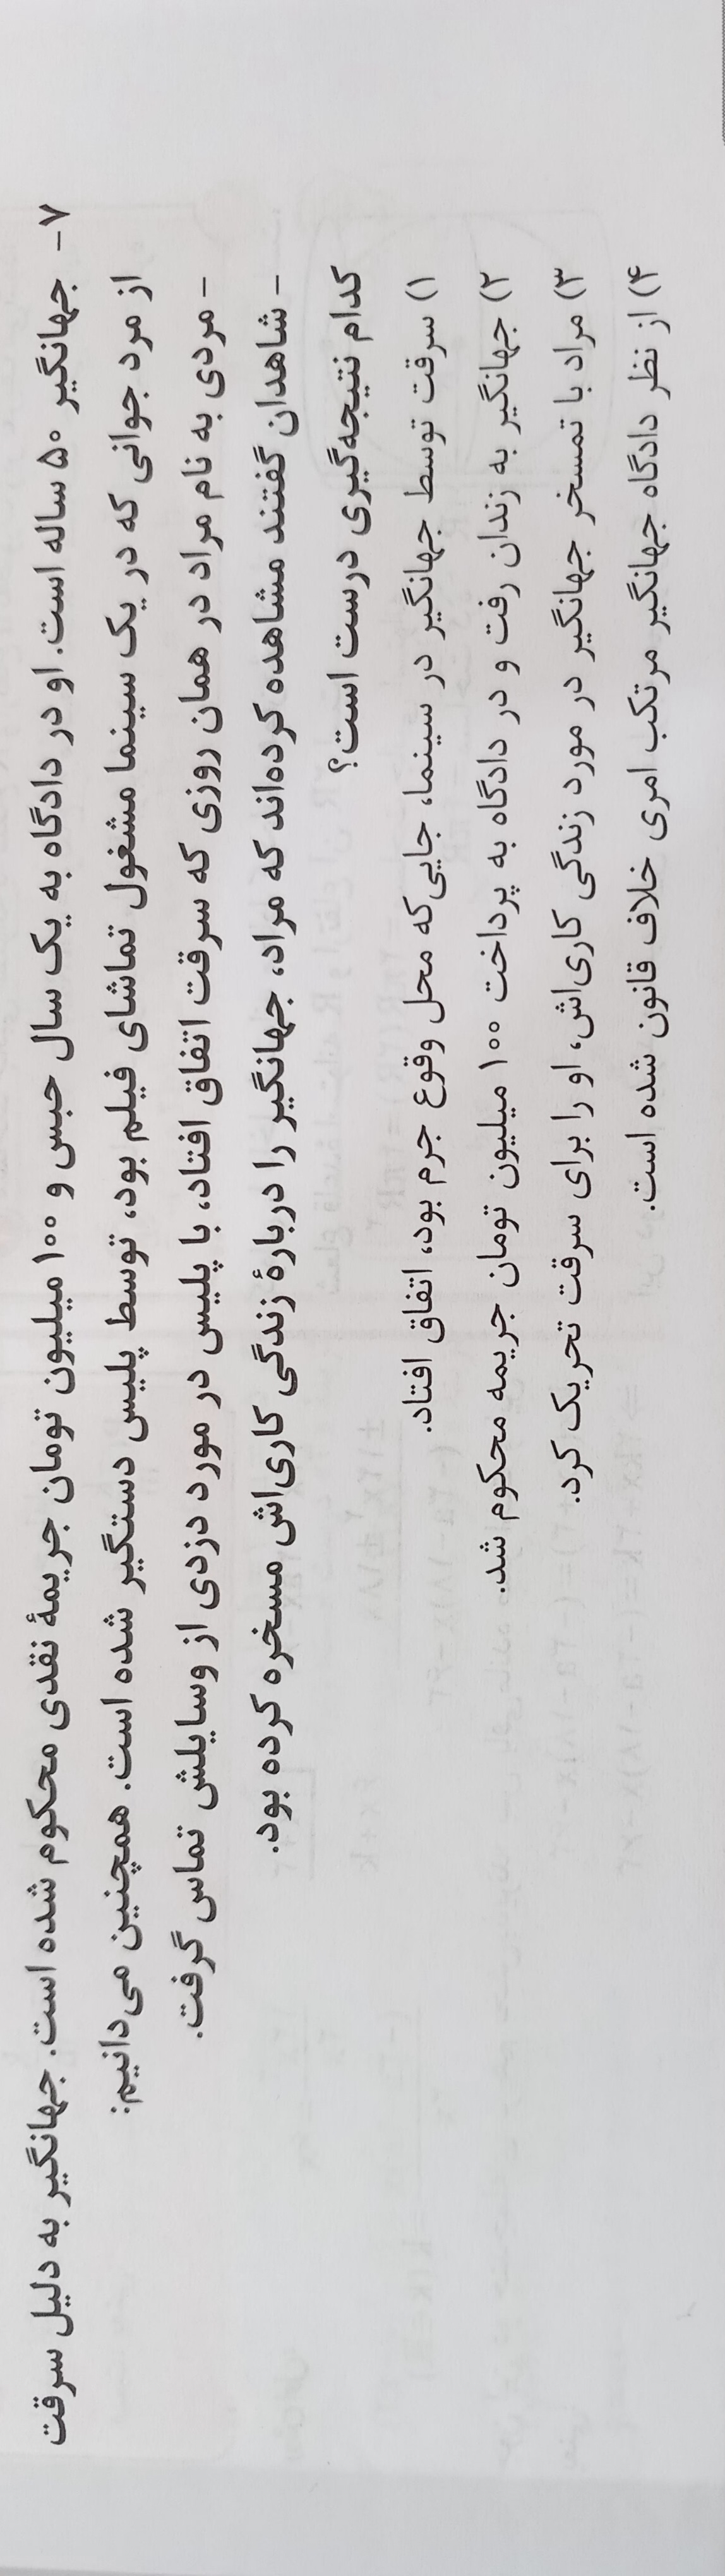 ۷- جهانگیر ۵۰ ساله است. او در دادگاه به یک سال حبس و ۱۰۰ میلیون تومان جریمهٔ نقدی محکوم شده است. جهانگیر به دلیل سرقت
از مرد جوانی که در یک سینما مشغول تماشای فیلم بود، توسط پلیس دستگیر شده است. همچنین می‌دانیم:
- مردی به نام مراد در همان روزی که سرقت اتفاق افتاد، با پلیس در مورد دزدی از وسایلش تماس گرفت.
- شاهدان گفتند مشاهده کرده‌اند که مراد، جهانگیر را دربارهٔ زندگی کاری‌اش مسخره کرده بود.
کدام نتیجه‌گیری درست است؟
۱) سرقت توسط جهانگیر در سینما، جایی‌که محل وقوع جرم بود، اتفاق افتاد.
۲) جهانگیر به زندان رفت و در دادگاه به پرداخت ۱۰۰ میلیون تومان جریمه محکوم شد.
۳) مراد با تمسخر جهانگیر در مورد زندگی کاری‌اش، او را برای سرقت تحریک کرد.
۴) از نظر دادگاه جهانگیر مرتکب امری خلاف قانون شده است.